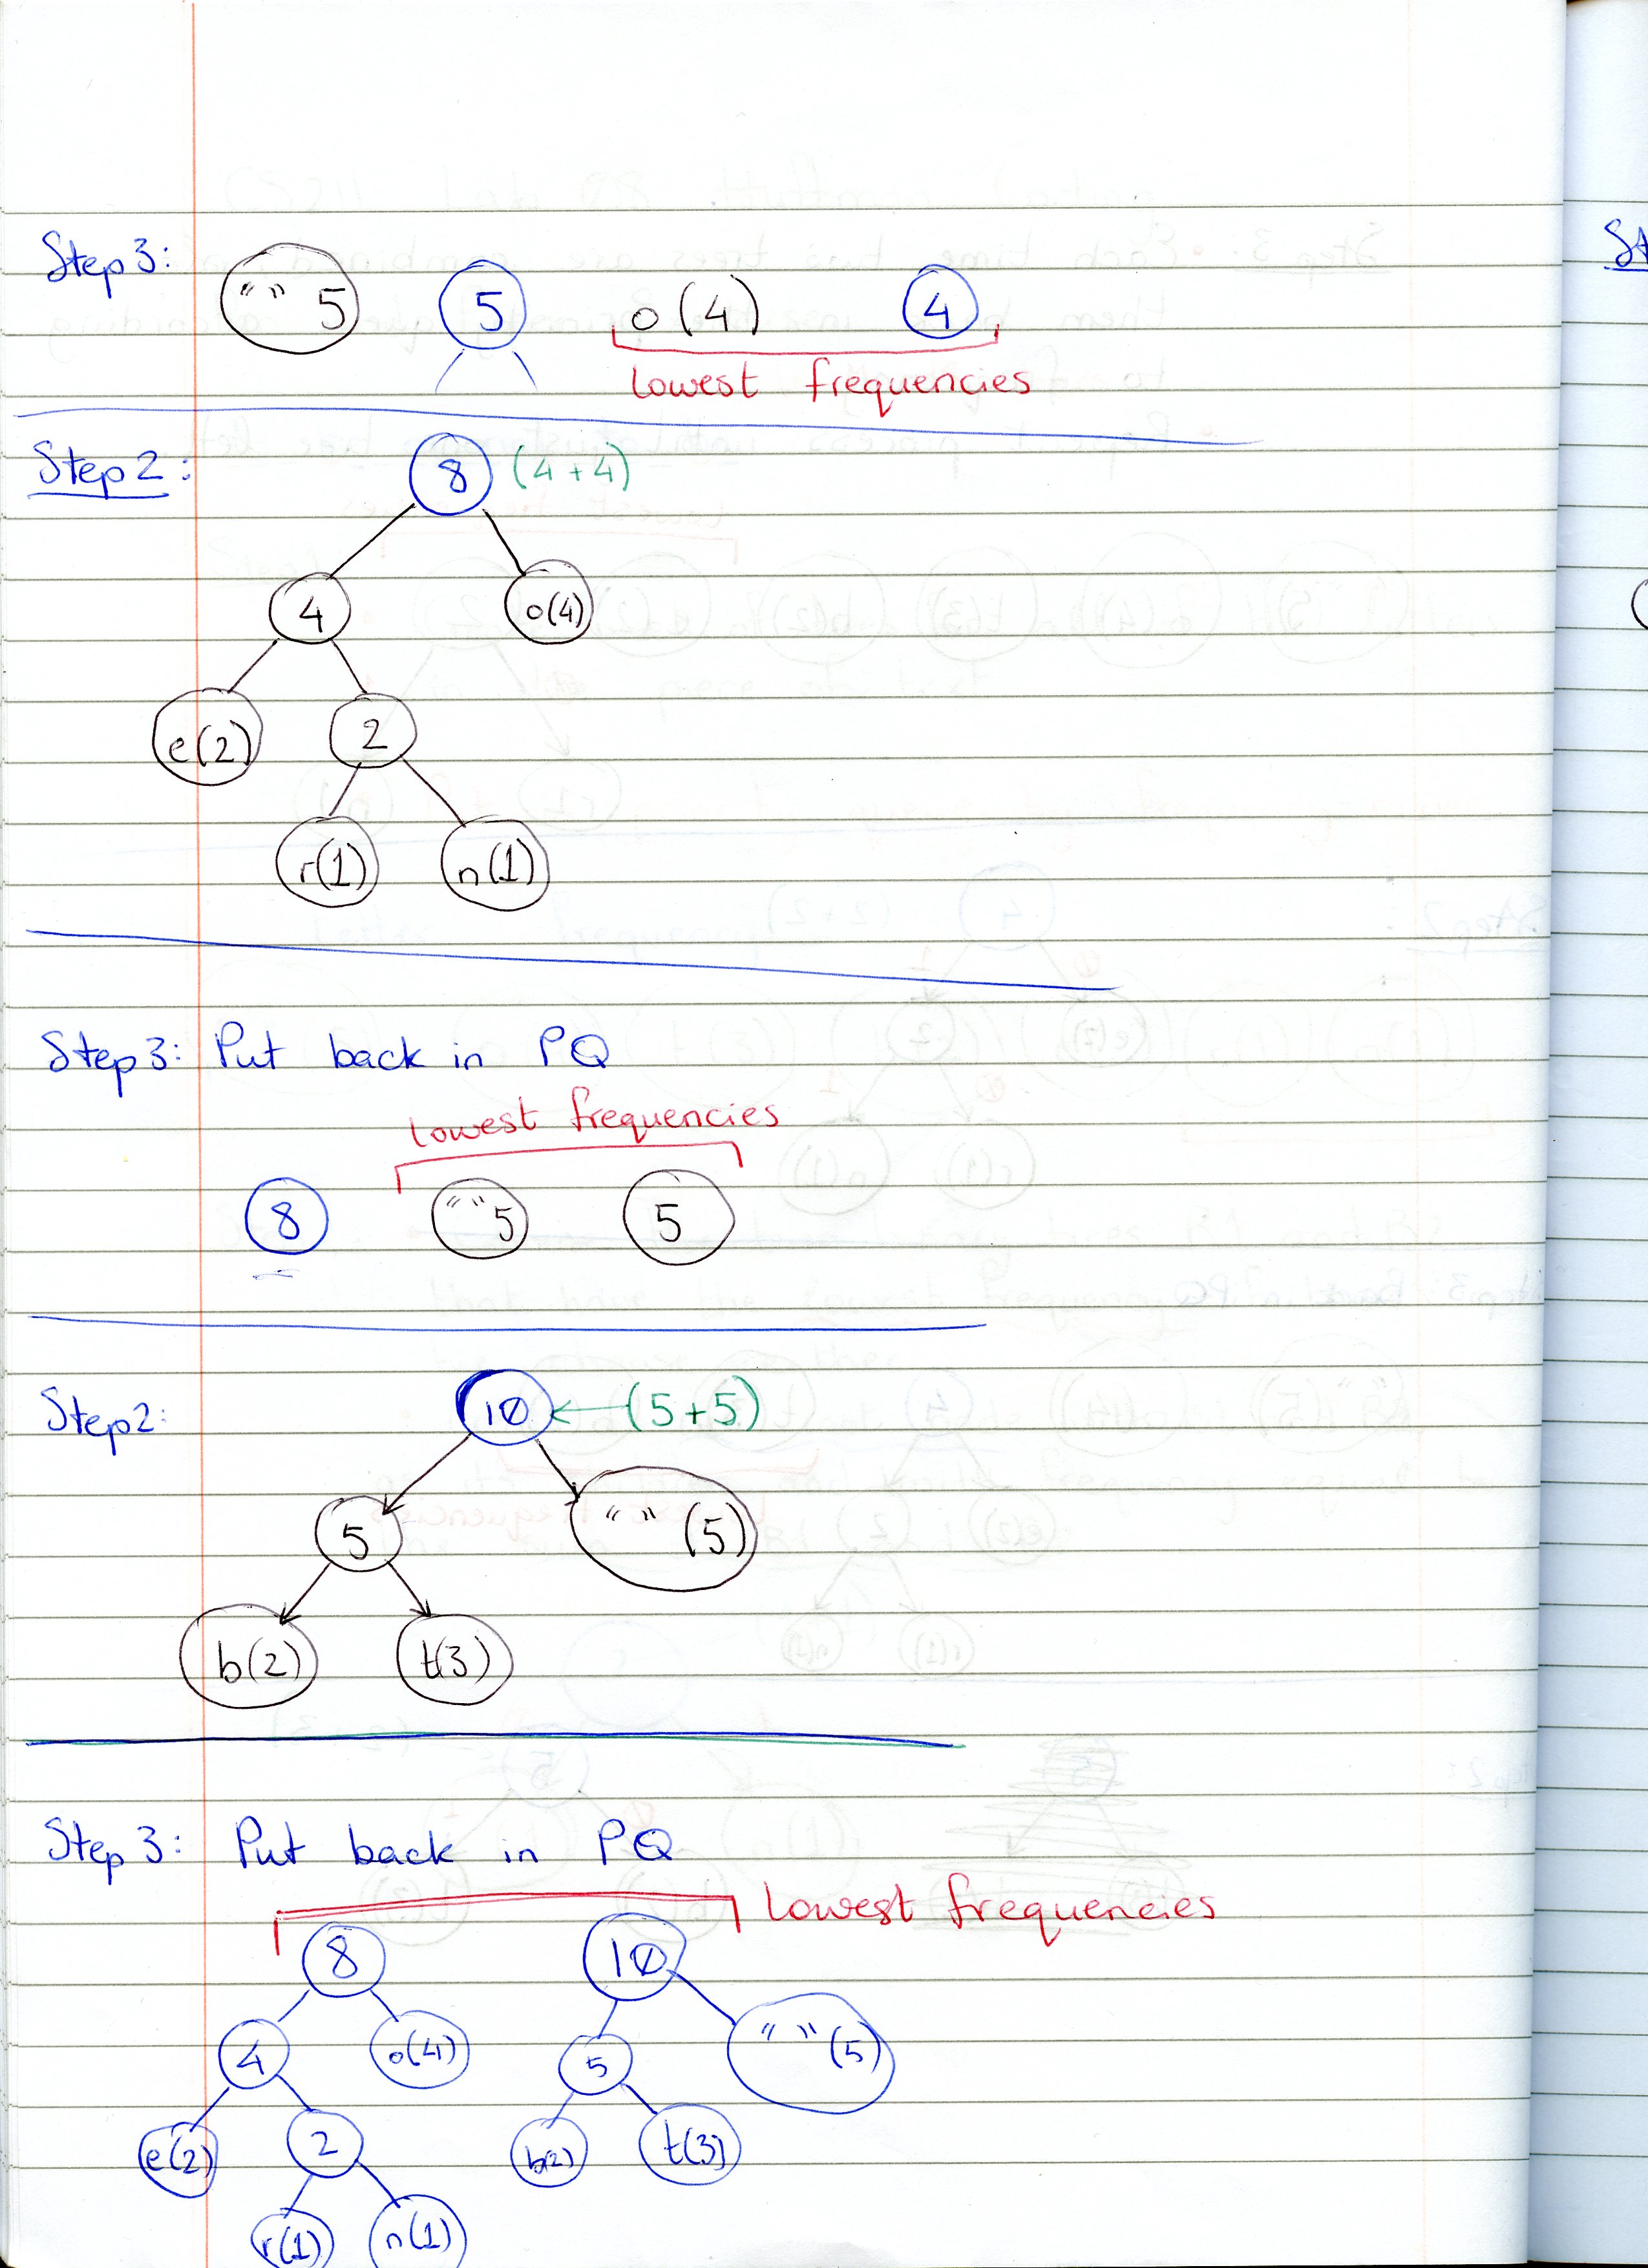 Step 3: " " 5 5 o (4) 4
lowest frequencies
Step 2: 8 (4+4)
4 o(4)
e(2) 2
r(1) n(1)
Step 3: Put back in PQ
lowest frequencies
8 " " 5 5
Step 2: 10 (5+5)
5 " " (5)
b(2) t(3)
Step 3: Put back in PQ
lowest frequencies
8 10
4 o(4) 5 " " (5)
e(2) 2 b(2) t(3)
r(1) n(1)
St